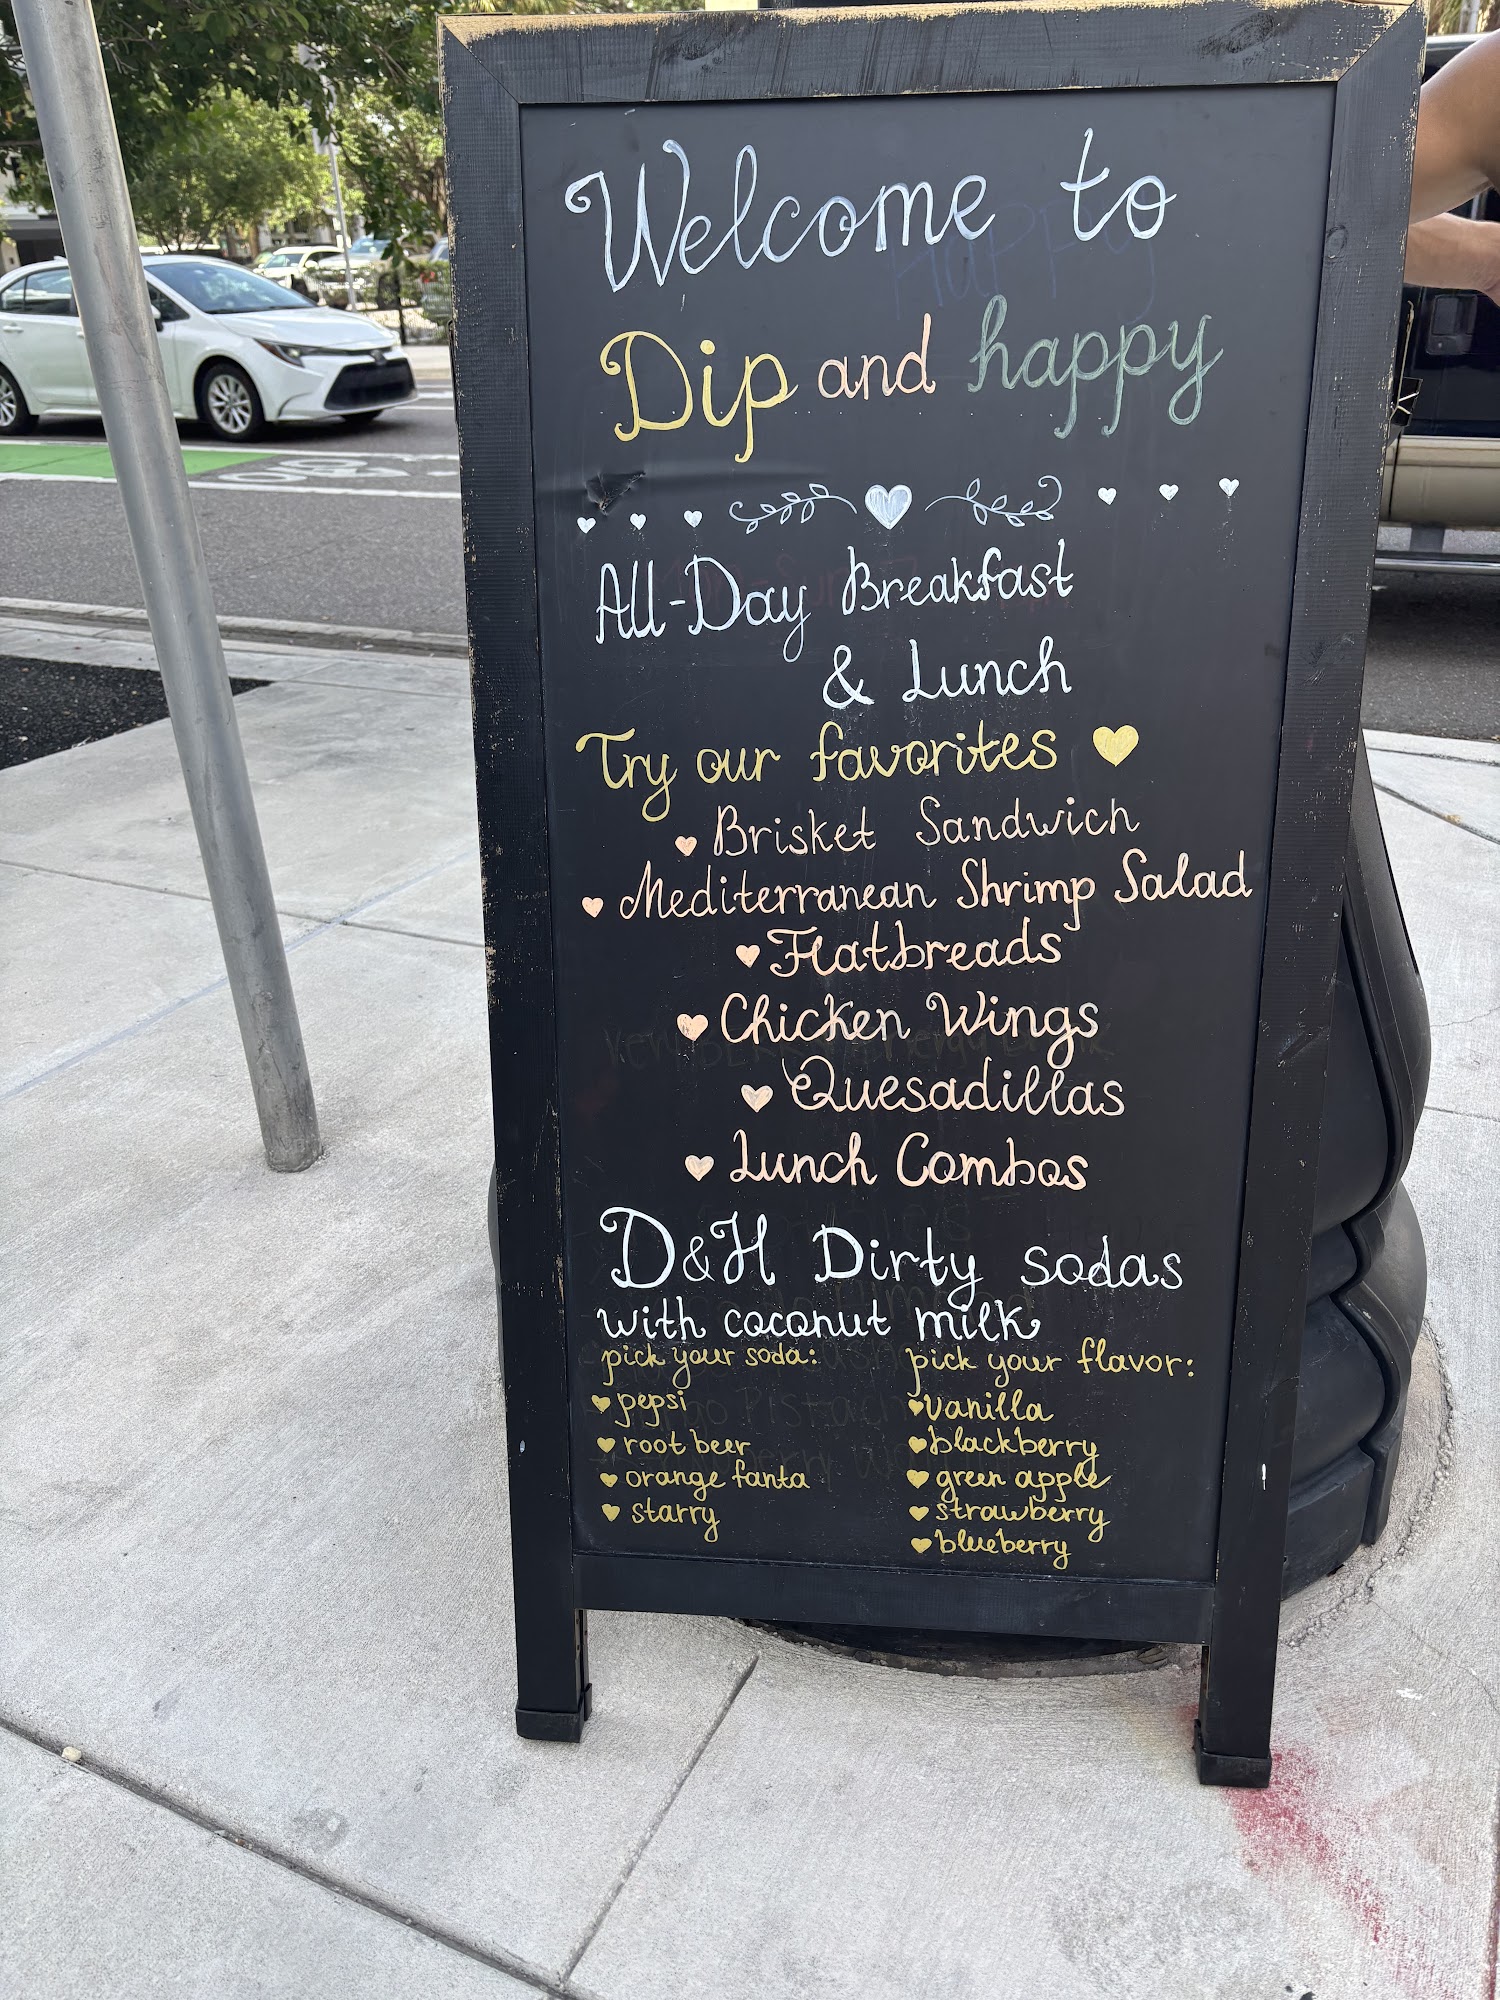 Welcome to
Dip and happy
All-Day Breakfast
& Lunch
Try our favorites
Brisket Sandwich
Mediterranean Shrimp Salad
Flatbreads
Chicken Wings
Quesadillas
Lunch Combos
D&H Dirty sodas
with coconut milk
pick your soda:
pepsi
root beer
orange fanta
starry
pick your flavor:
vanilla
blackberry
green apple
strawberry
blueberry